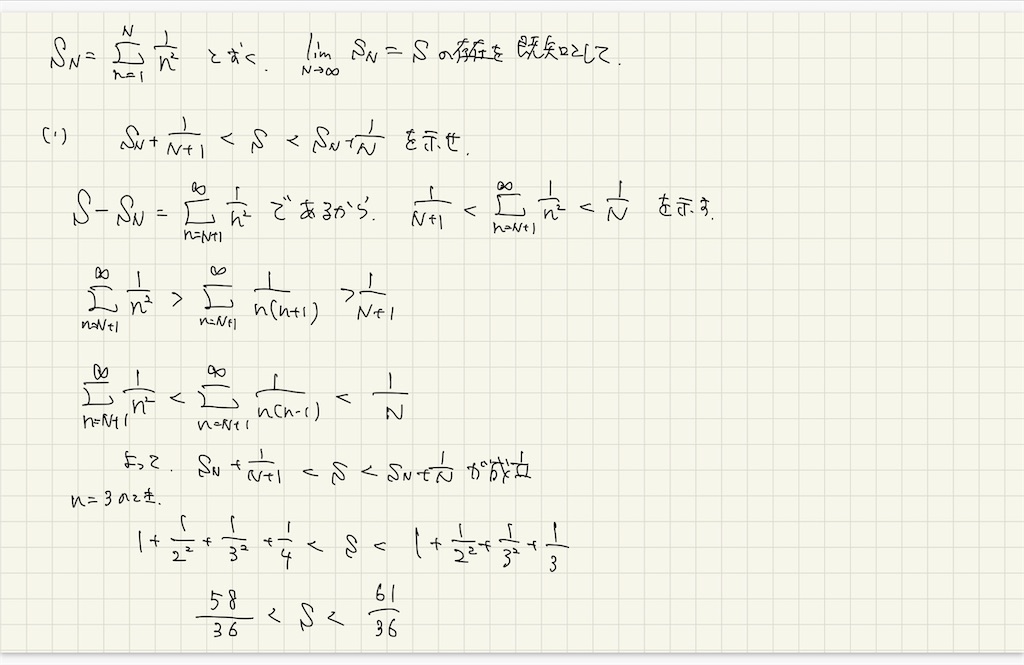 S_N = \sum_{n=1}^{N} \frac{1}{n^2} とおく. \lim_{N→∞} S_N = S の存在を既知として.
(1) S_N + \frac{1}{N+1} < S < S_N + \frac{1}{N} を示せ.
S - S_N = \sum_{n=N+1}^{∞} \frac{1}{n^2} であるから. \frac{1}{N+1} < \sum_{n=N+1}^{∞} \frac{1}{n^2} < \frac{1}{N} を示す.
\sum_{n=N+1}^{∞} \frac{1}{n^2} > \sum_{n=N+1}^{∞} \frac{1}{n(n+1)} > \frac{1}{N+1}
\sum_{n=N+1}^{∞} \frac{1}{n^2} < \sum_{n=N+1}^{∞} \frac{1}{n(n-1)} < \frac{1}{N}
よって. S_N + \frac{1}{N+1} < S < S_N + \frac{1}{N} が成立
n=3のとき.
1 + \frac{1}{2^2} + \frac{1}{3^2} + \frac{1}{4} < S < 1 + \frac{1}{2^2} + \frac{1}{3^2} + \frac{1}{3}
\frac{58}{36} < S < \frac{61}{36}